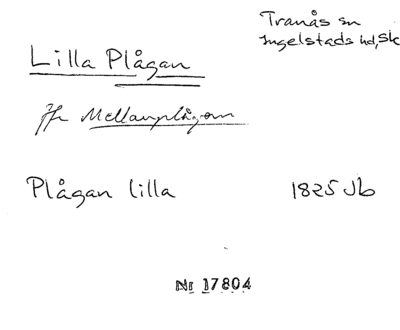 Tranås sn
Ingelstads hd, Sk
Lilla Plågan
Jfr Mellanplågan
Plågan lilla 1825 Jb
Nr 17804